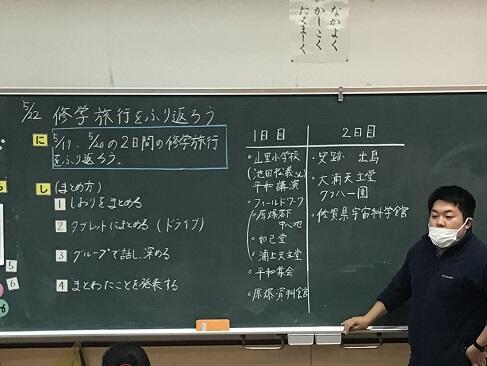 なかよく
かしこく
たくましく
5/22 修学旅行をふり返ろう
に
5/19、5/20の2日間の修学旅行
をふり返ろう。
し (まとめ方)
1 しおりをまとめる
2 タブレットにまとめる(ドライブ)
3 グループで話し、深める
4 まとめたことを発表する
1日目
・山里小学校
(池田松義
平和講演
・フィールドワーク
・原爆落下
中心地
・如己堂
・浦上天主堂
・平和集会
・原爆資料館
2日目
・史跡 出島
・大浦天主堂
グラバー園
・佐賀県宇宙科学館
5
6
COLUMBIA